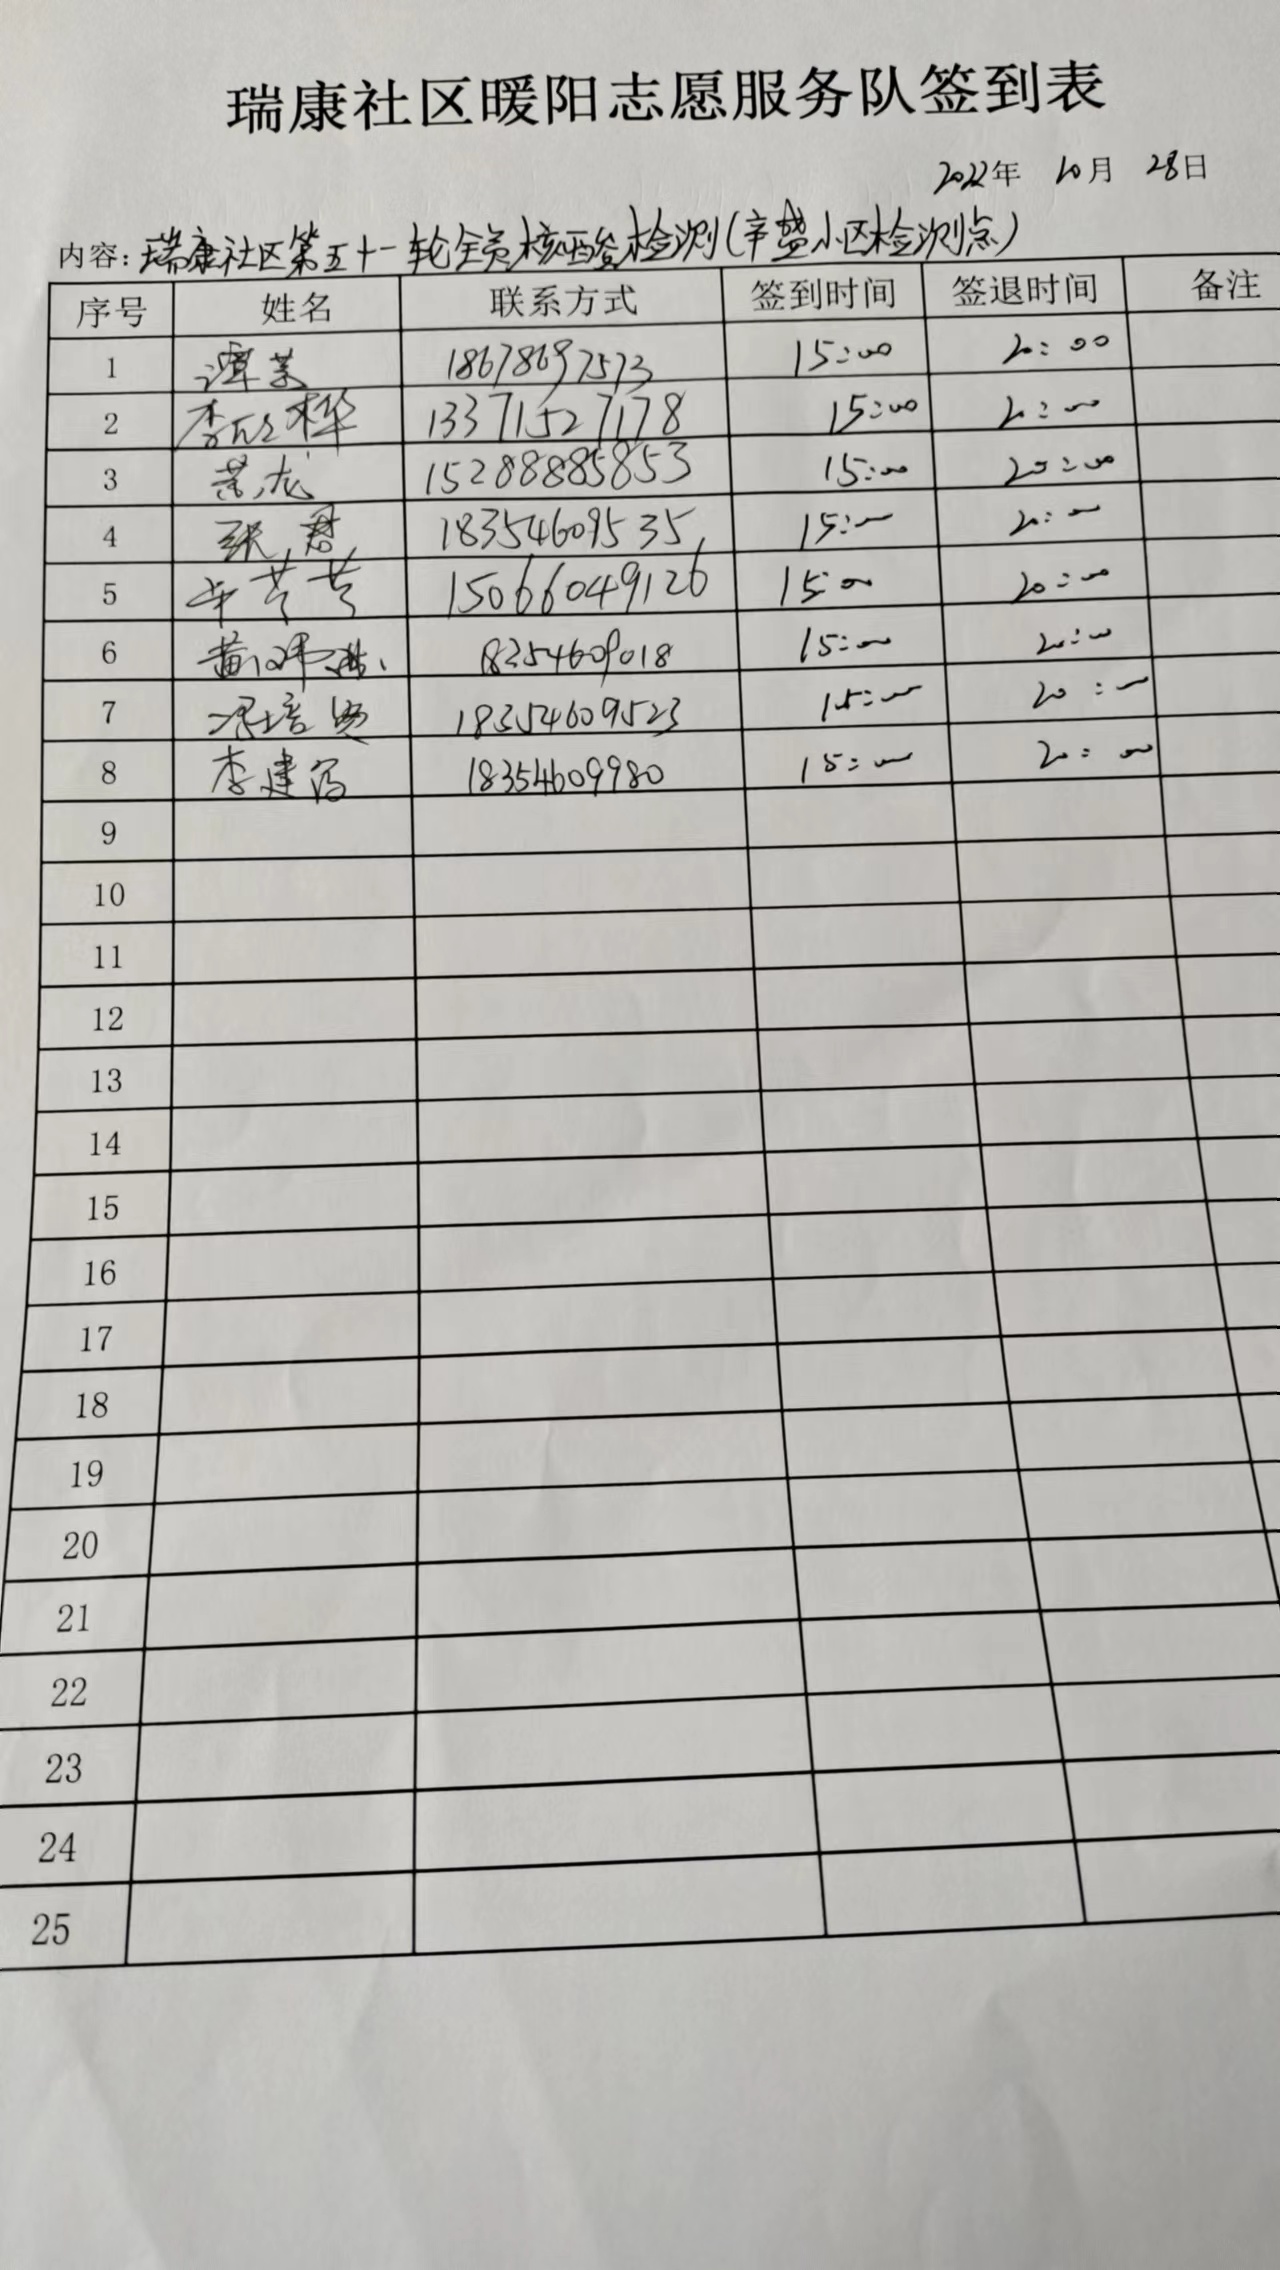 瑞康社区暖阳志愿服务队签到表
2022年 10月 28日
内容：瑞康社区第五十一轮全员核酸检测(辛盛小区检测点)
序号 姓名 联系方式 签到时间 签退时间 备注
1 谭 18678697573 15:00 20:00
2 李欣桦 13371527178 15:00 20:00
3 龙 15288885853 15:00 20:00
4 张君 18354609535 15:00 20:00
5 辛芳芳 15066049126 15:00 20:00
6 黄 18254609018 15:00 20:00
7 培 18354609523 15:00 20:00
8 李建 18354609980 15:00 20:00
9
10
11
12
13
14
15
16
17
18
19
20
21
22
23
24
25